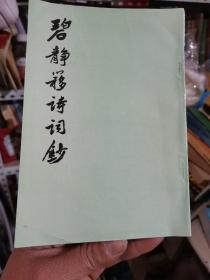 碧静移诗词钞